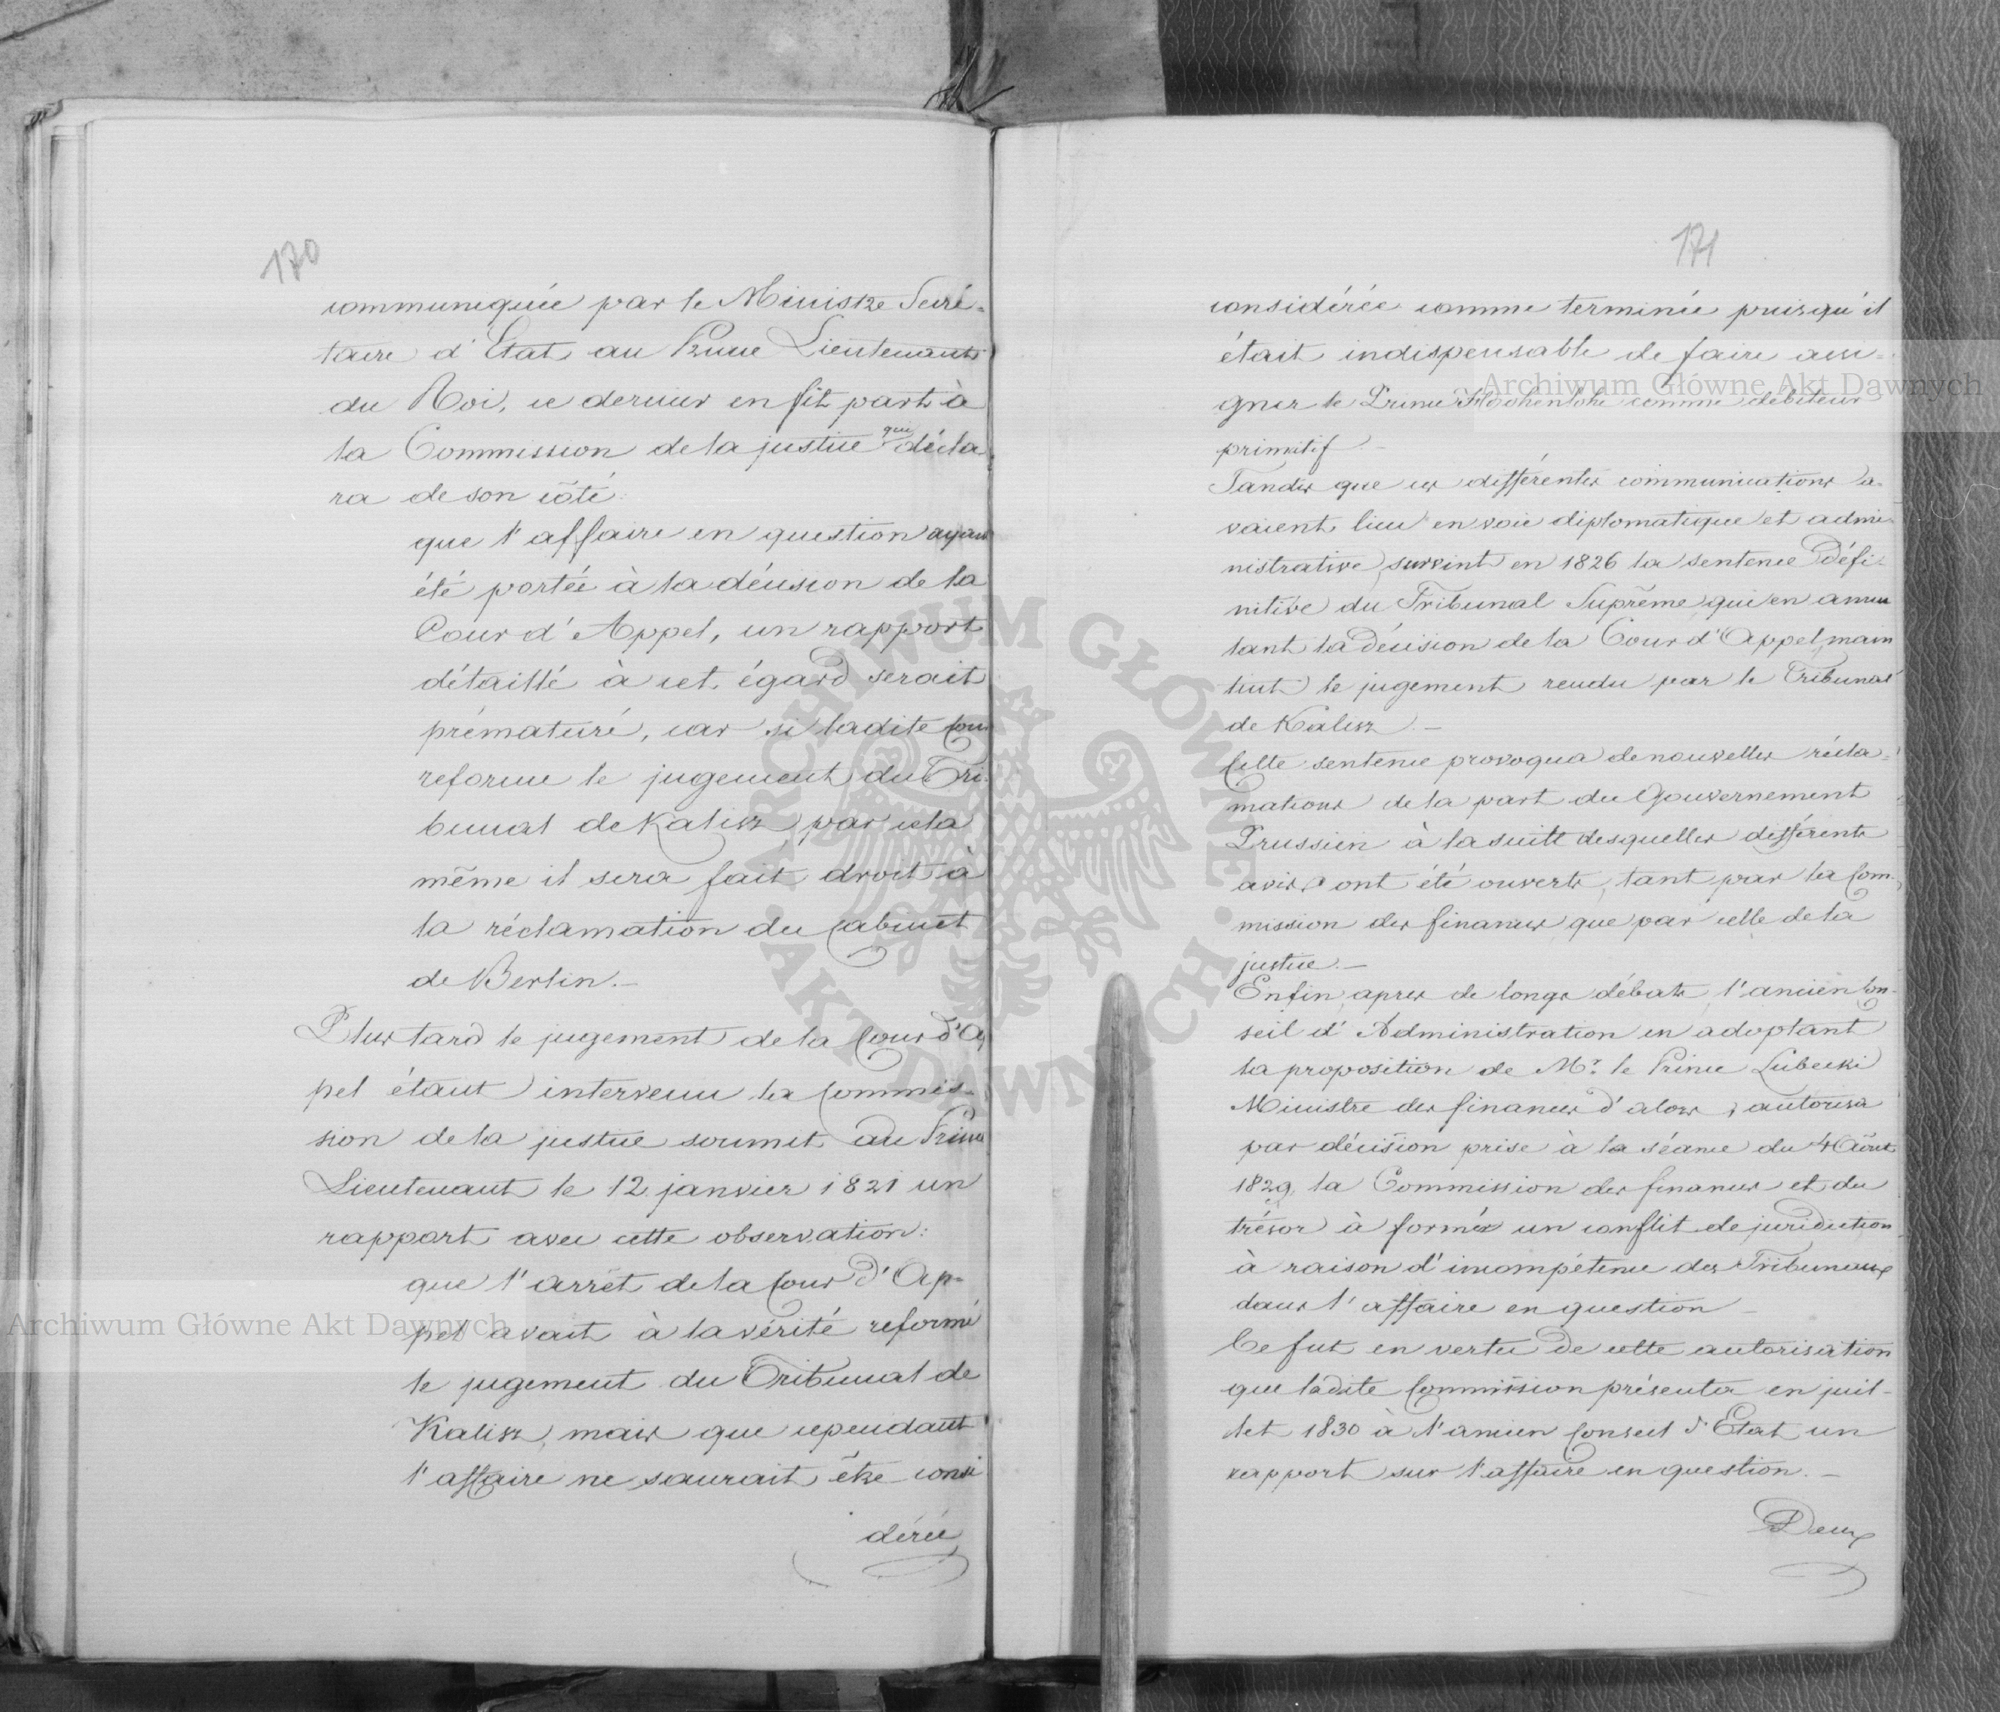 170
communiquée par le Ministre Secré-
taire d'Etat au Prince Lieutenant
du Roi, ce dernier en fit part à
la Commission de la justice qui décla
ra de son côté:
que l'affaire en question ayant
été portée à la décision de la
Cour d'Appel, un rapport
détaillé à cet égard serait
prématuré, car si ladite Cour
reforme le jugement du Tri-
bunal de Kalisz, par cela
même il sera fait droit à
la réclamation du Cabinet
de Berlin.—
Plus tard le jugement de la Cour d'Ap
pel étant intervenu la Commis-
sion de la justice soumit au Prince
Lieutenant le 12 janvier 1821 un
rapport avec cette observation:
que l'arrêt de la Cour d'Ap-
pel avait à la vérité reformé
le jugement du Tribunal de
Kalisz, mais que cependant
l'affaire ne saurait être consi
dérée
171
considérée comme terminée puisqu'il
était indispensable de faire assi-
gner le Prince Hohenlohe comme débiteur
primitif.—
Tandis que ces différentes communications a-
vaient lieu en voie diplomatique et admi-
nistrative, survint en 1826 la sentence défi-
nitive du Tribunal Suprême qui en annu
lant la décision de la Cour d'Appel, main
tint le jugement rendu par le Tribunal
de Kalisz.—
Cette sentence provoqua de nouvelles récla-
mations de la part du Gouvernement
Prussien à la suite desquelles différents
avis ont été ouverts, tant par la Com-
mission des finances que par celle de la
justice.—
Enfin, après de longs débats, l'ancien Con-
seil d'Administration en adoptant
la proposition de Mr. le Prince Lubecki
Ministre des finances d'alors, autorisa
par décision prise à la séance du 4 Août
1829, la Commission des finances et du
trésor à former un conflit de juridiction
à raison d'incompétence des Tribunaux
dans l'affaire en question —
Ce fut en vertu de cette autorisation
que ladite Commission présenta en juil-
let 1830 à l'ancien Conseil d'Etat un
rapport sur l'affaire en question.—
Deux
Archiwum Główne Akt Dawnych
Archiwum Główne Akt Dawnych
ARCHIWUM GŁÓWNE · AKT DAWNYCH ·